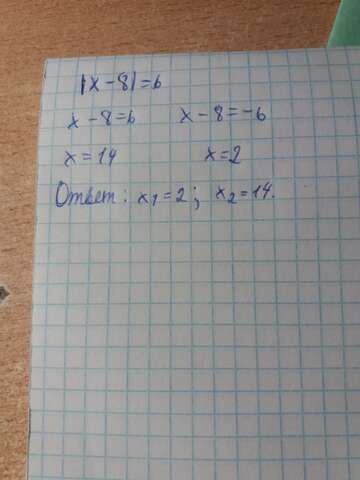 |x-8|=6
x-8=6 x-8=-6
x=14 x=2
Ответ: x₁=2; x₂=14.